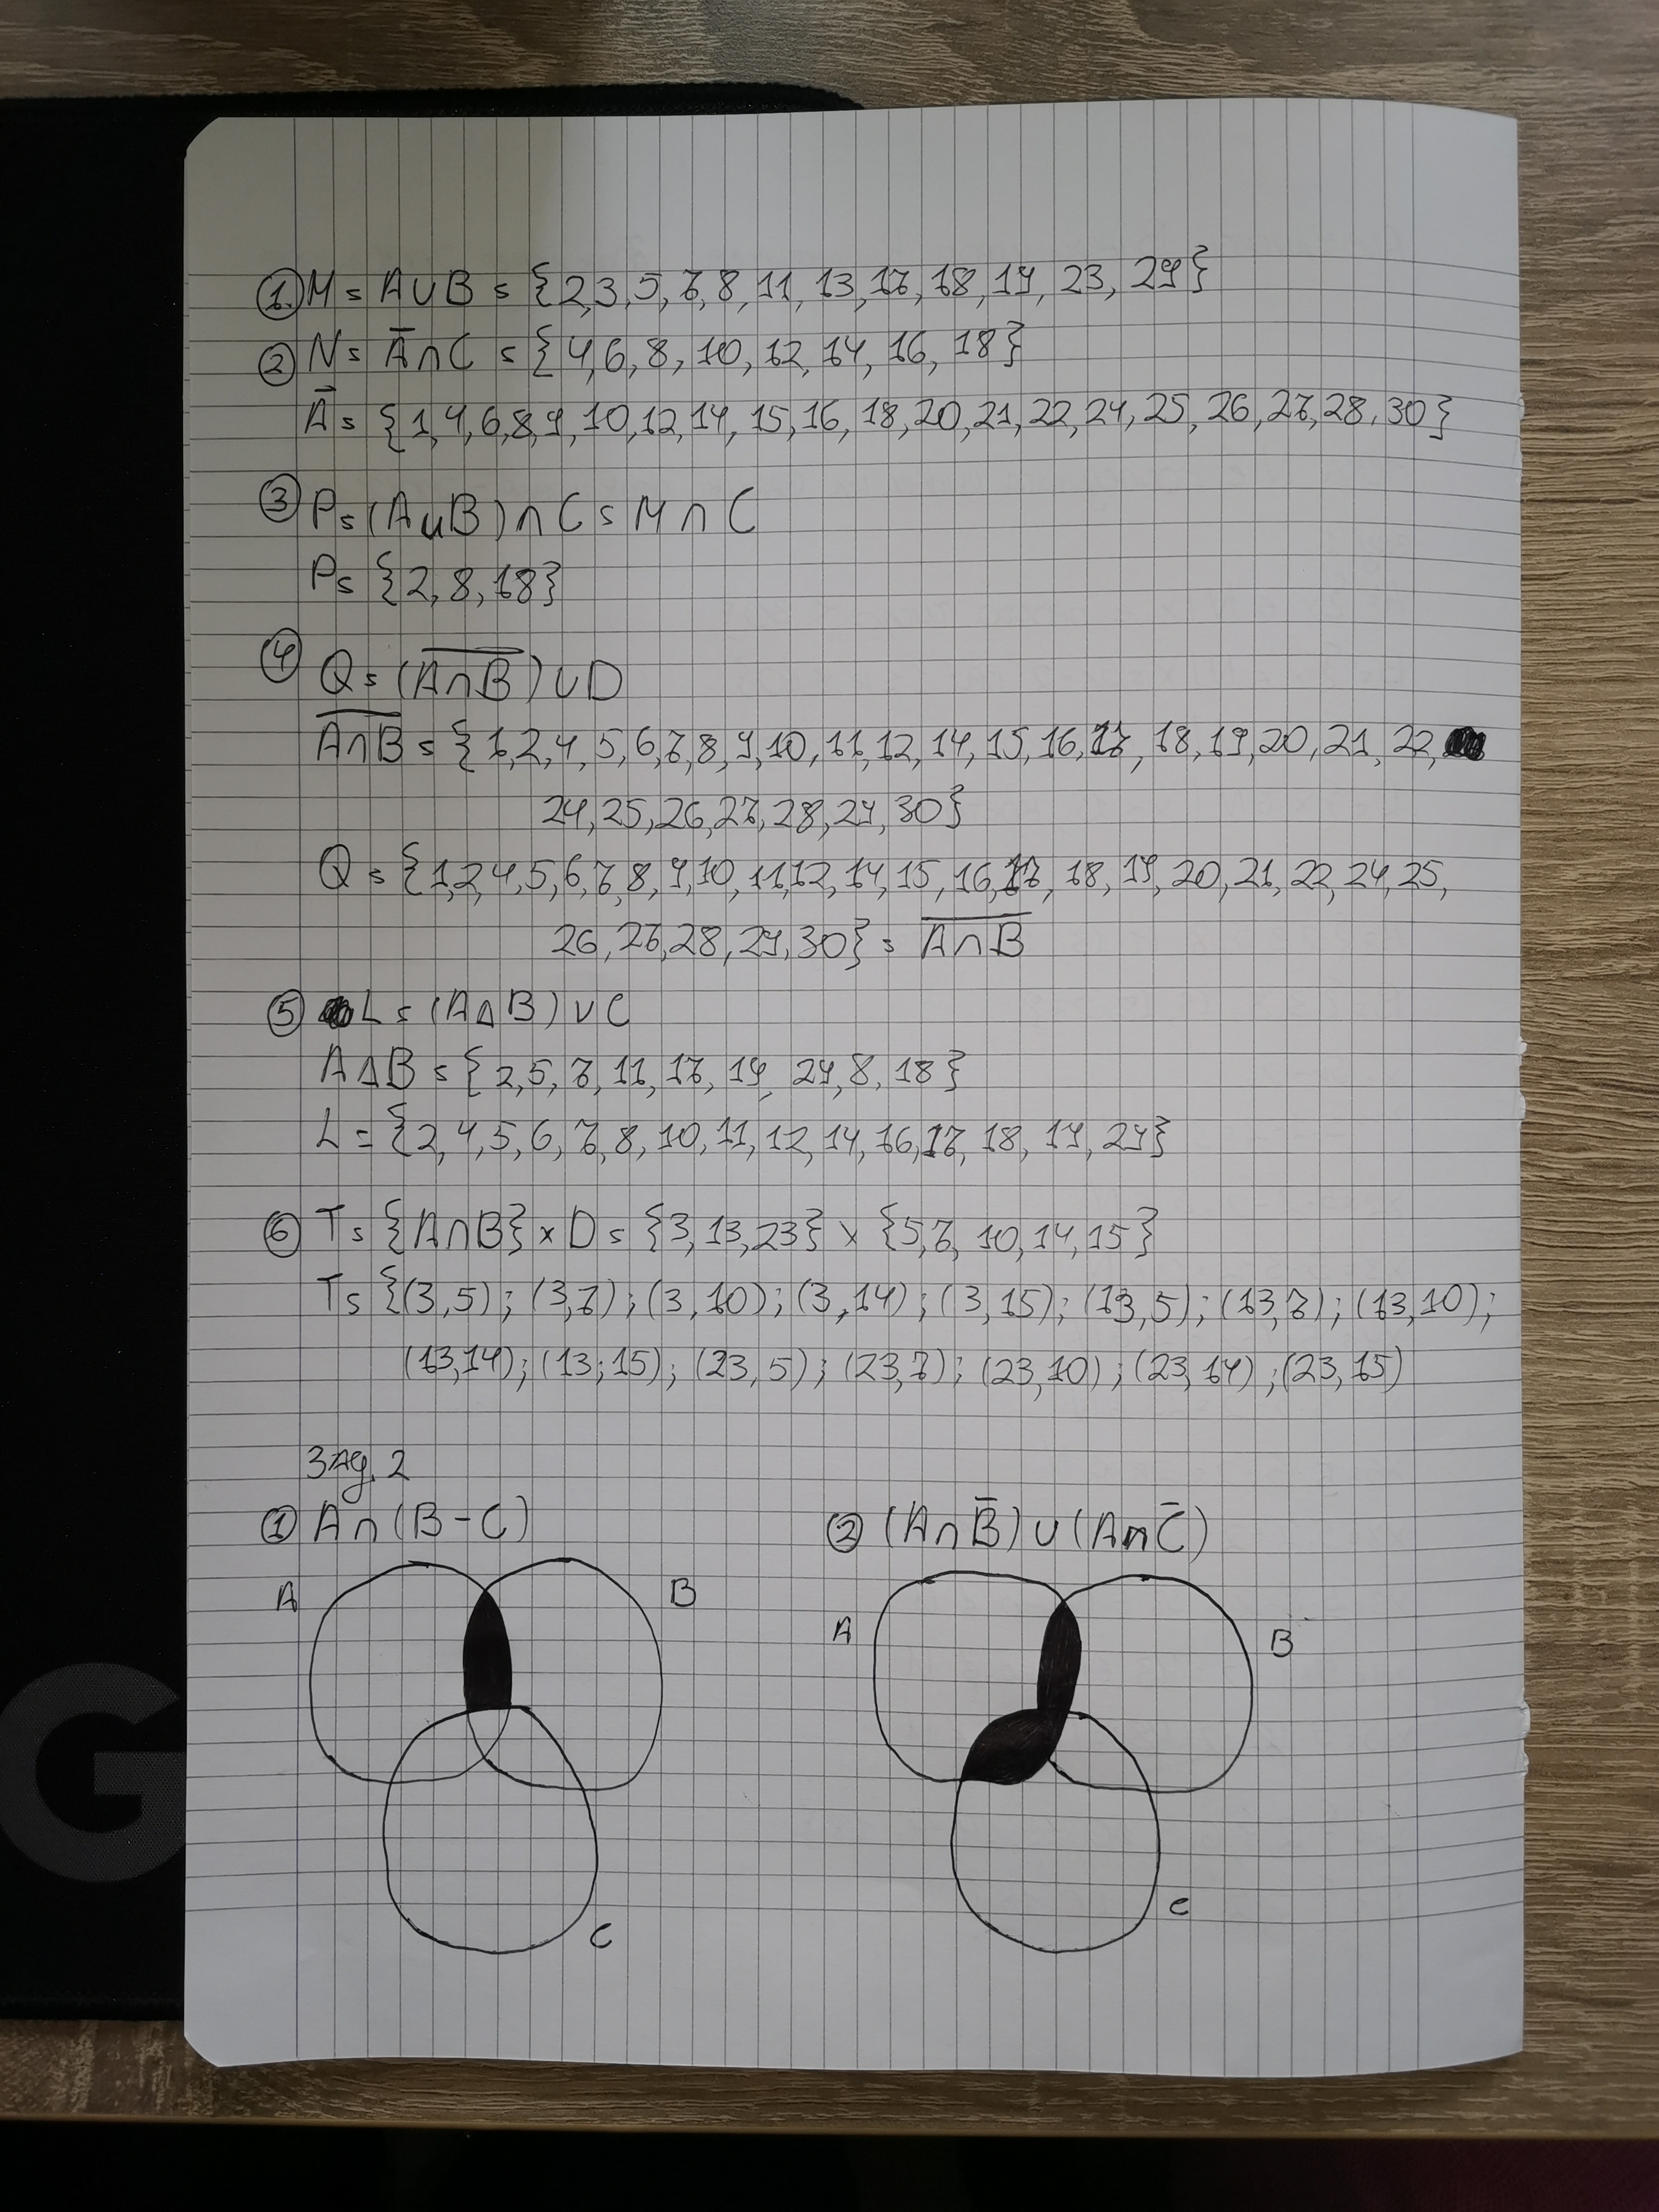 ① M = A∪B = {2,3,5,7,8,11,13,17,18,19,23,29}
② N = A̅∩C = {4,6,8,10,12,14,16,18}
A̅ = {1,4,6,8,9,10,12,14,15,16,18,20,21,22,24,25,26,27,28,30}
③ P = (A∪B)∩C = M∩C
P = {2,8,18}
④ Q = (A̅∩̅B̅)∪D
A̅∩̅B̅ = {1,2,4,5,6,7,8,9,10,11,12,14,15,16,17,18,19,20,21,22,
24,25,26,27,28,29,30}
Q = {1,2,4,5,6,7,8,9,10,11,12,14,15,16,17,18,19,20,21,22,24,25,
26,27,28,29,30} = A̅∩̅B̅
⑤ L = (A△B)∪C
A△B = {2,5,7,11,17,19,29,8,18}
L = {2,4,5,6,7,8,10,11,12,14,16,17,18,19,29}
⑥ T = {A∩B}×D = {3,13,23} × {5,7,10,14,15}
T = {(3,5);(3,7);(3,10);(3,14);(3,15);(13,5);(13,7);(13,10);
(13,14);(13;15);(23,5);(23,7);(23,10);(23,14);(23,15)
Зад. 2
① A∩(B-C) ② (A∩B̅)∪(A∩C̅)
A B A B
C C
G